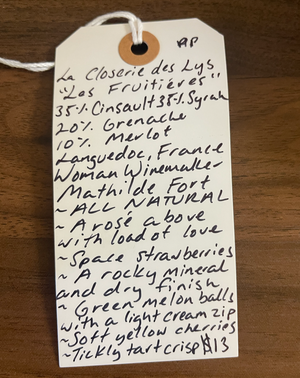 AP
La Closerie des Lys
"Les Fruitiéres"
35% Cinsault 35% Syrah
20% Grenache
10% Merlot
Languedoc, France
Woman Winemaker
Mathilde Fort
~ ALL NATURAL
~ A rosé above
with load of love
~ Space strawberries
~ A rocky mineral
and dry finish
~ Green melon balls
with a light cream zip
~ Soft yellow cherries
~ Tickly tart crisp $13